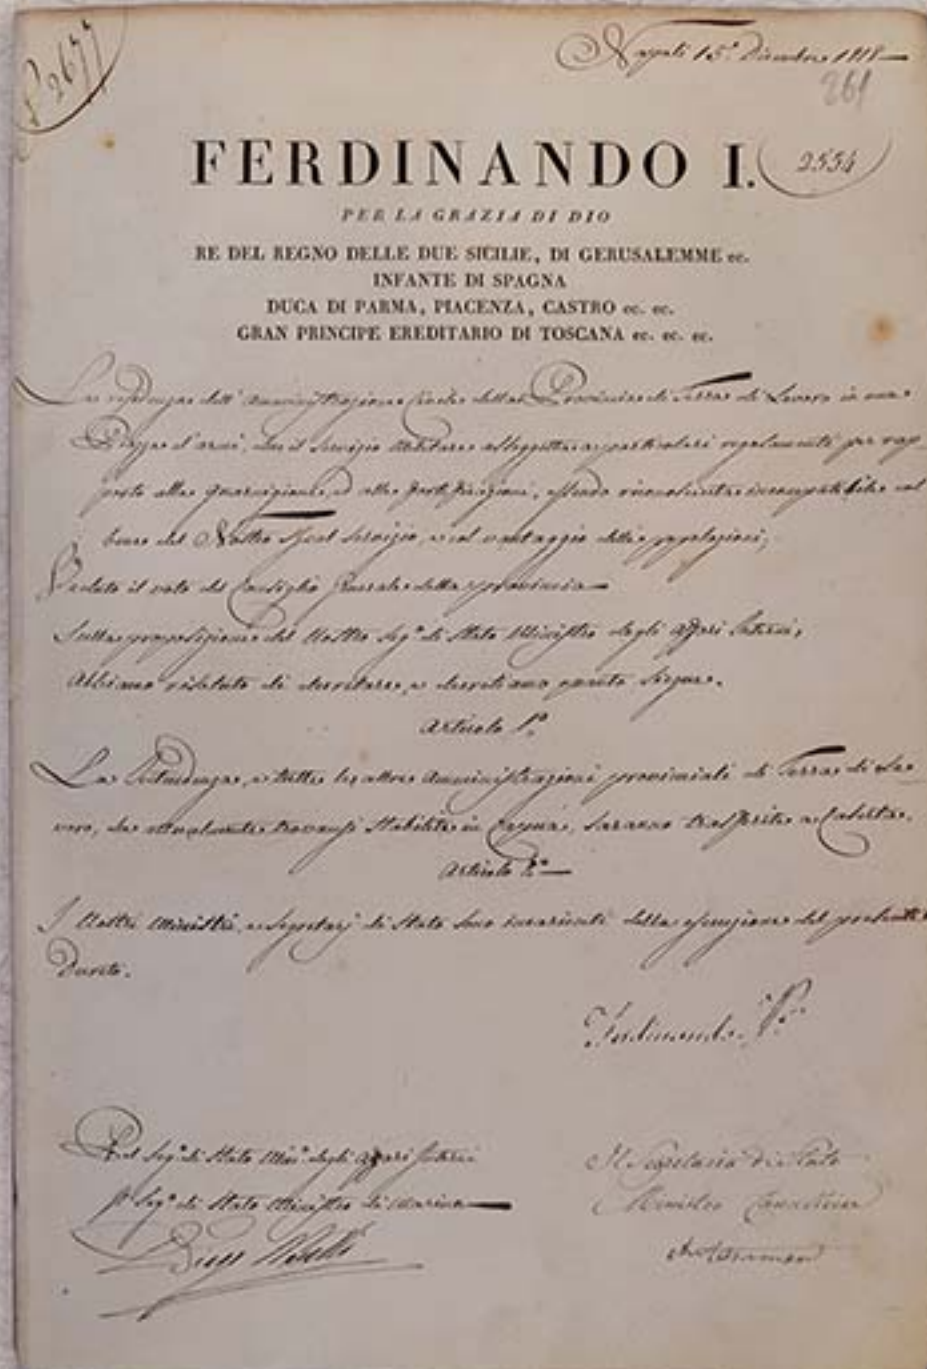 N. 2677
Napoli 15. Dicembre 1818
261
FERDINANDO I.
2554
PER LA GRAZIA DI DIO
RE DEL REGNO DELLE DUE SICILIE, DI GERUSALEMME ec.
INFANTE DI SPAGNA
DUCA DI PARMA, PIACENZA, CASTRO ec. ec.
GRAN PRINCIPE EREDITARIO DI TOSCANA ec. ec. ec.
La residenza dell'amministrazione Civile della Provincia di Terra di Lavoro in una
Piazza d'armi, ove il servizio Militare assoggetta a particolari regolamenti per rap-
porto alla guarnigione, ed alle fortificazioni, essendo riconosciuta incompatibile col
bene del Nostro Real Servizio, e col vantaggio delle popolazioni;
Veduto il voto del Consiglio Generale della provincia
Sulla proposizione del Nostro Seg.o di Stato Ministro degli affari Interni,
Abbiamo risoluto di decretare, e decretiamo quanto siegue.
Articolo 1.o
La Intendenza, e tutte le altre amministrazioni provinciali di Terra di La-
voro, che attualmente trovansi stabilite in Capua, saranno trasferite a Caserta.
Articolo 2.o
I Nostri Ministri, e Segretarj di Stato sono incaricati della esecuzione del presente
Decreto.
Ferdinando
Pel Seg.o di Stato Min.o degli affari Interni
Il Seg.o di Stato Ministro di Marina
Il Segretario di Stato
Ministro Cancelliere